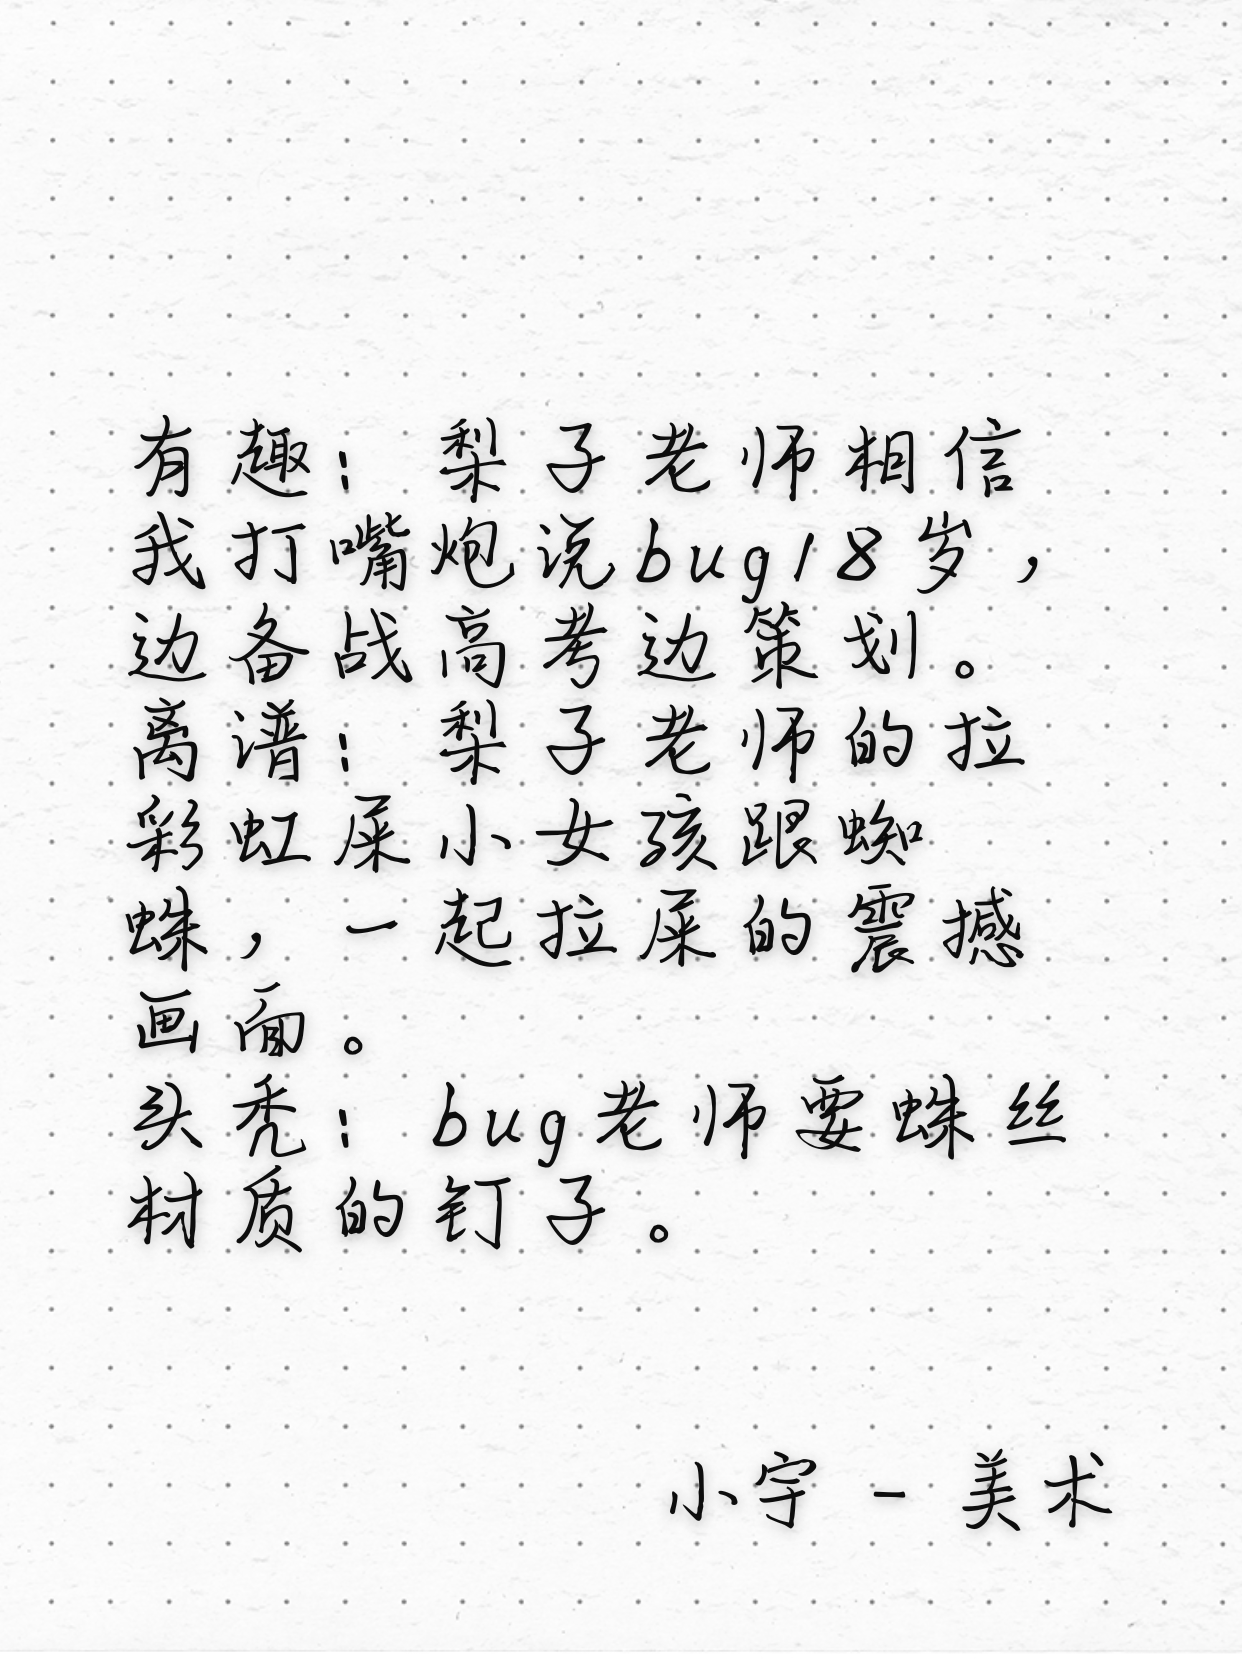 有趣：梨子老师相信
我打嘴炮说bug18岁，
边备战高考边策划。
离谱：梨子老师的拉
彩虹屎小女孩跟蜘
蛛，一起拉屎的震撼
画面。
头秃：bug老师要蛛丝
材质的钉子。
小宇 - 美术